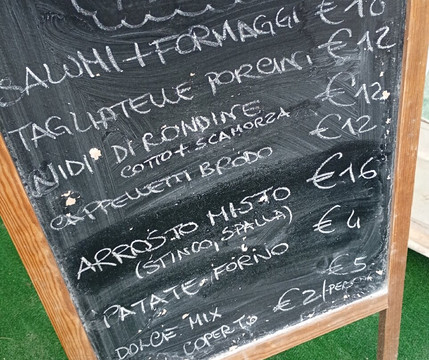 SALUMI + FORMAGGI €10
TAGLIATELLE PORCINI €12
NIDI DI RONDINE €12
COTTO + SCAMORZA
CAPPELLETTI BRODO €12
ARROSTO MISTO €16
(STINCO, SPALLA)
PATATE FORNO €4
DOLCE MIX €5
COPERTO €2/PERSONA